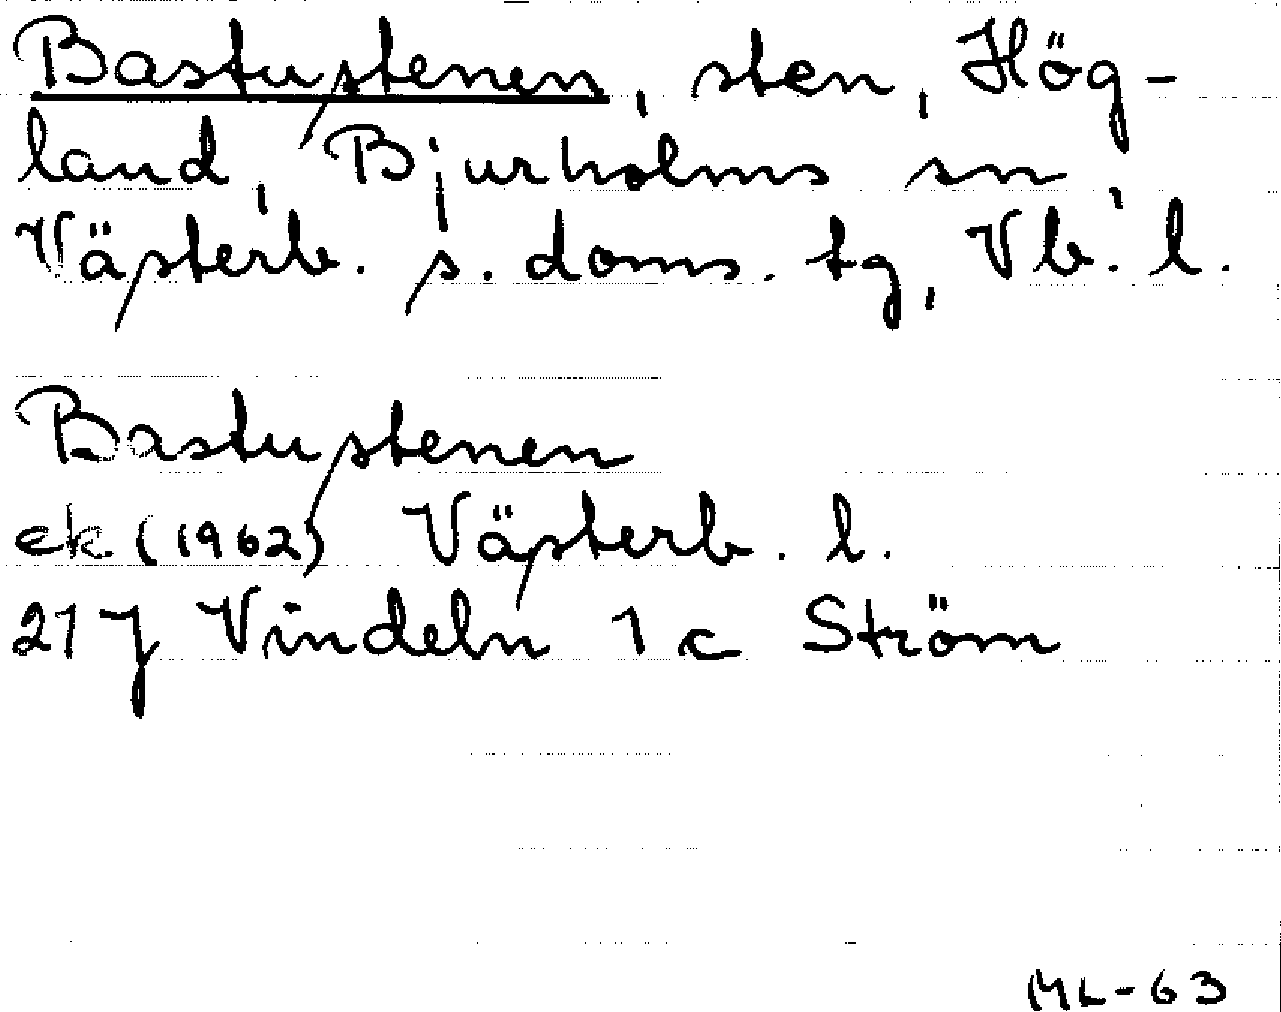 Bastustenen, sten, Hög-
land, Bjurholms sn,
Västerb. s. doms. tg, Vb. l.
Bastustenen
ek (1962) Västerb. l.
21 J Vindeln 1 c Ström
ML-63